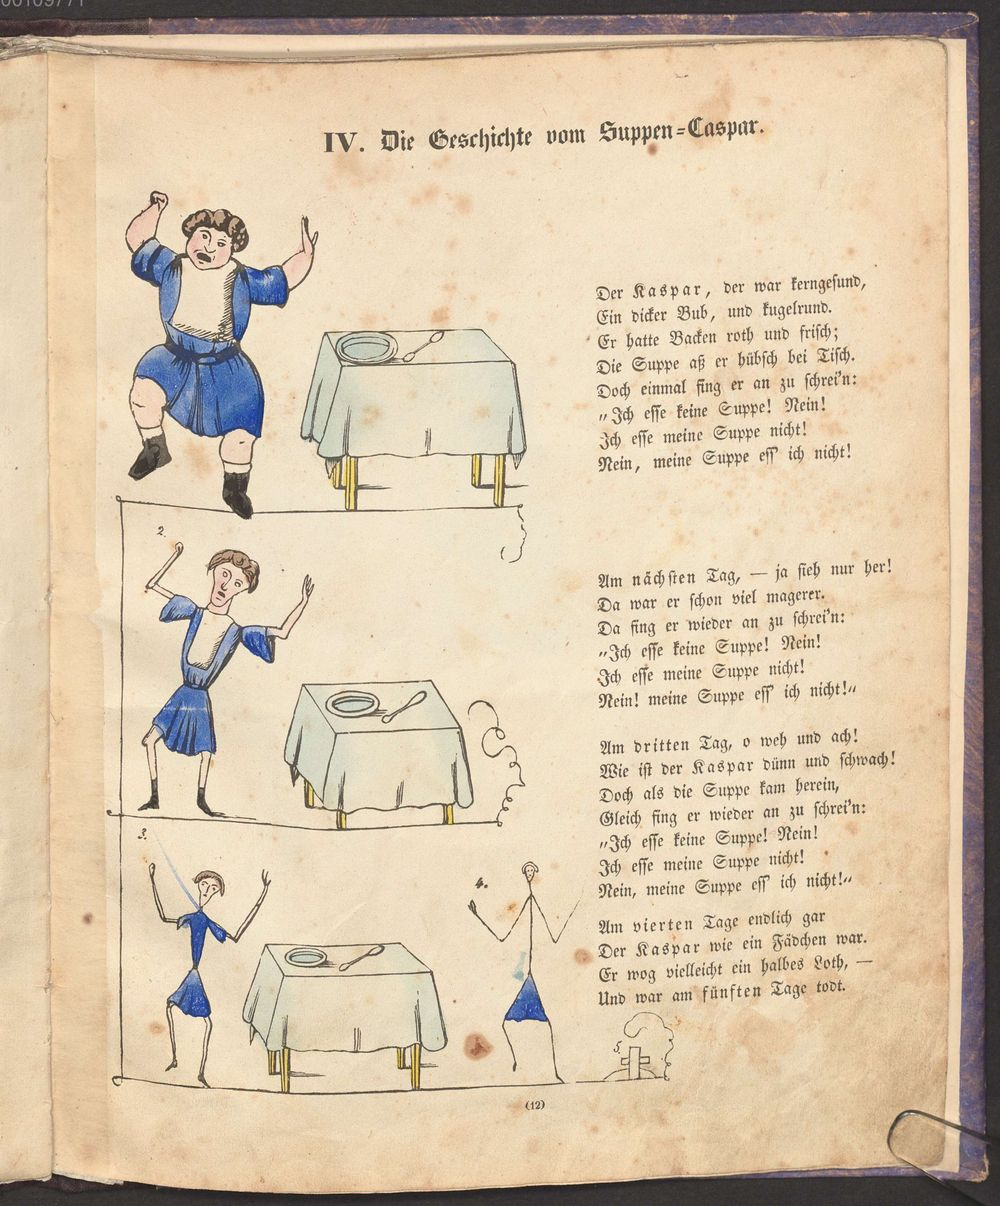 00109771
IV. Die Geschichte vom Suppen=Caspar.
Der Kaspar, der war kerngesund,
Ein dicker Bub, und kugelrund.
Er hatte Backen roth und frisch;
Die Suppe aß er hübsch bei Tisch.
Doch einmal fing er an zu schrei'n:
„Ich esse keine Suppe! Nein!
Ich esse meine Suppe nicht!
Nein, meine Suppe ess' ich nicht!
2.
Am nächsten Tag, — ja sieh nur her!
Da war er schon viel magerer.
Da fing er wieder an zu schrei'n:
„Ich esse keine Suppe! Nein!
Ich esse meine Suppe nicht!
Nein! meine Suppe ess' ich nicht!“
3.
Am dritten Tag, o weh und ach!
Wie ist der Kaspar dünn und schwach!
Doch als die Suppe kam herein,
Gleich fing er wieder an zu schrei'n:
„Ich esse keine Suppe! Nein!
Ich esse meine Suppe nicht!
Nein, meine Suppe ess' ich nicht!“
4.
Am vierten Tage endlich gar
Der Kaspar wie ein Fädchen war.
Er wog vielleicht ein halbes Loth, —
Und war am fünften Tage todt.
5.
(12)